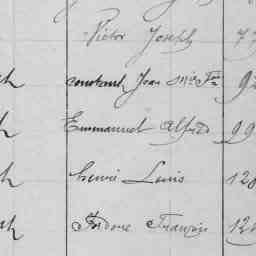 Victor Joseph 7
ch constant Jean Mie Fs 92
h Emmanuel Alfred 99
ch henri Louis 120
ch Isidore François 12